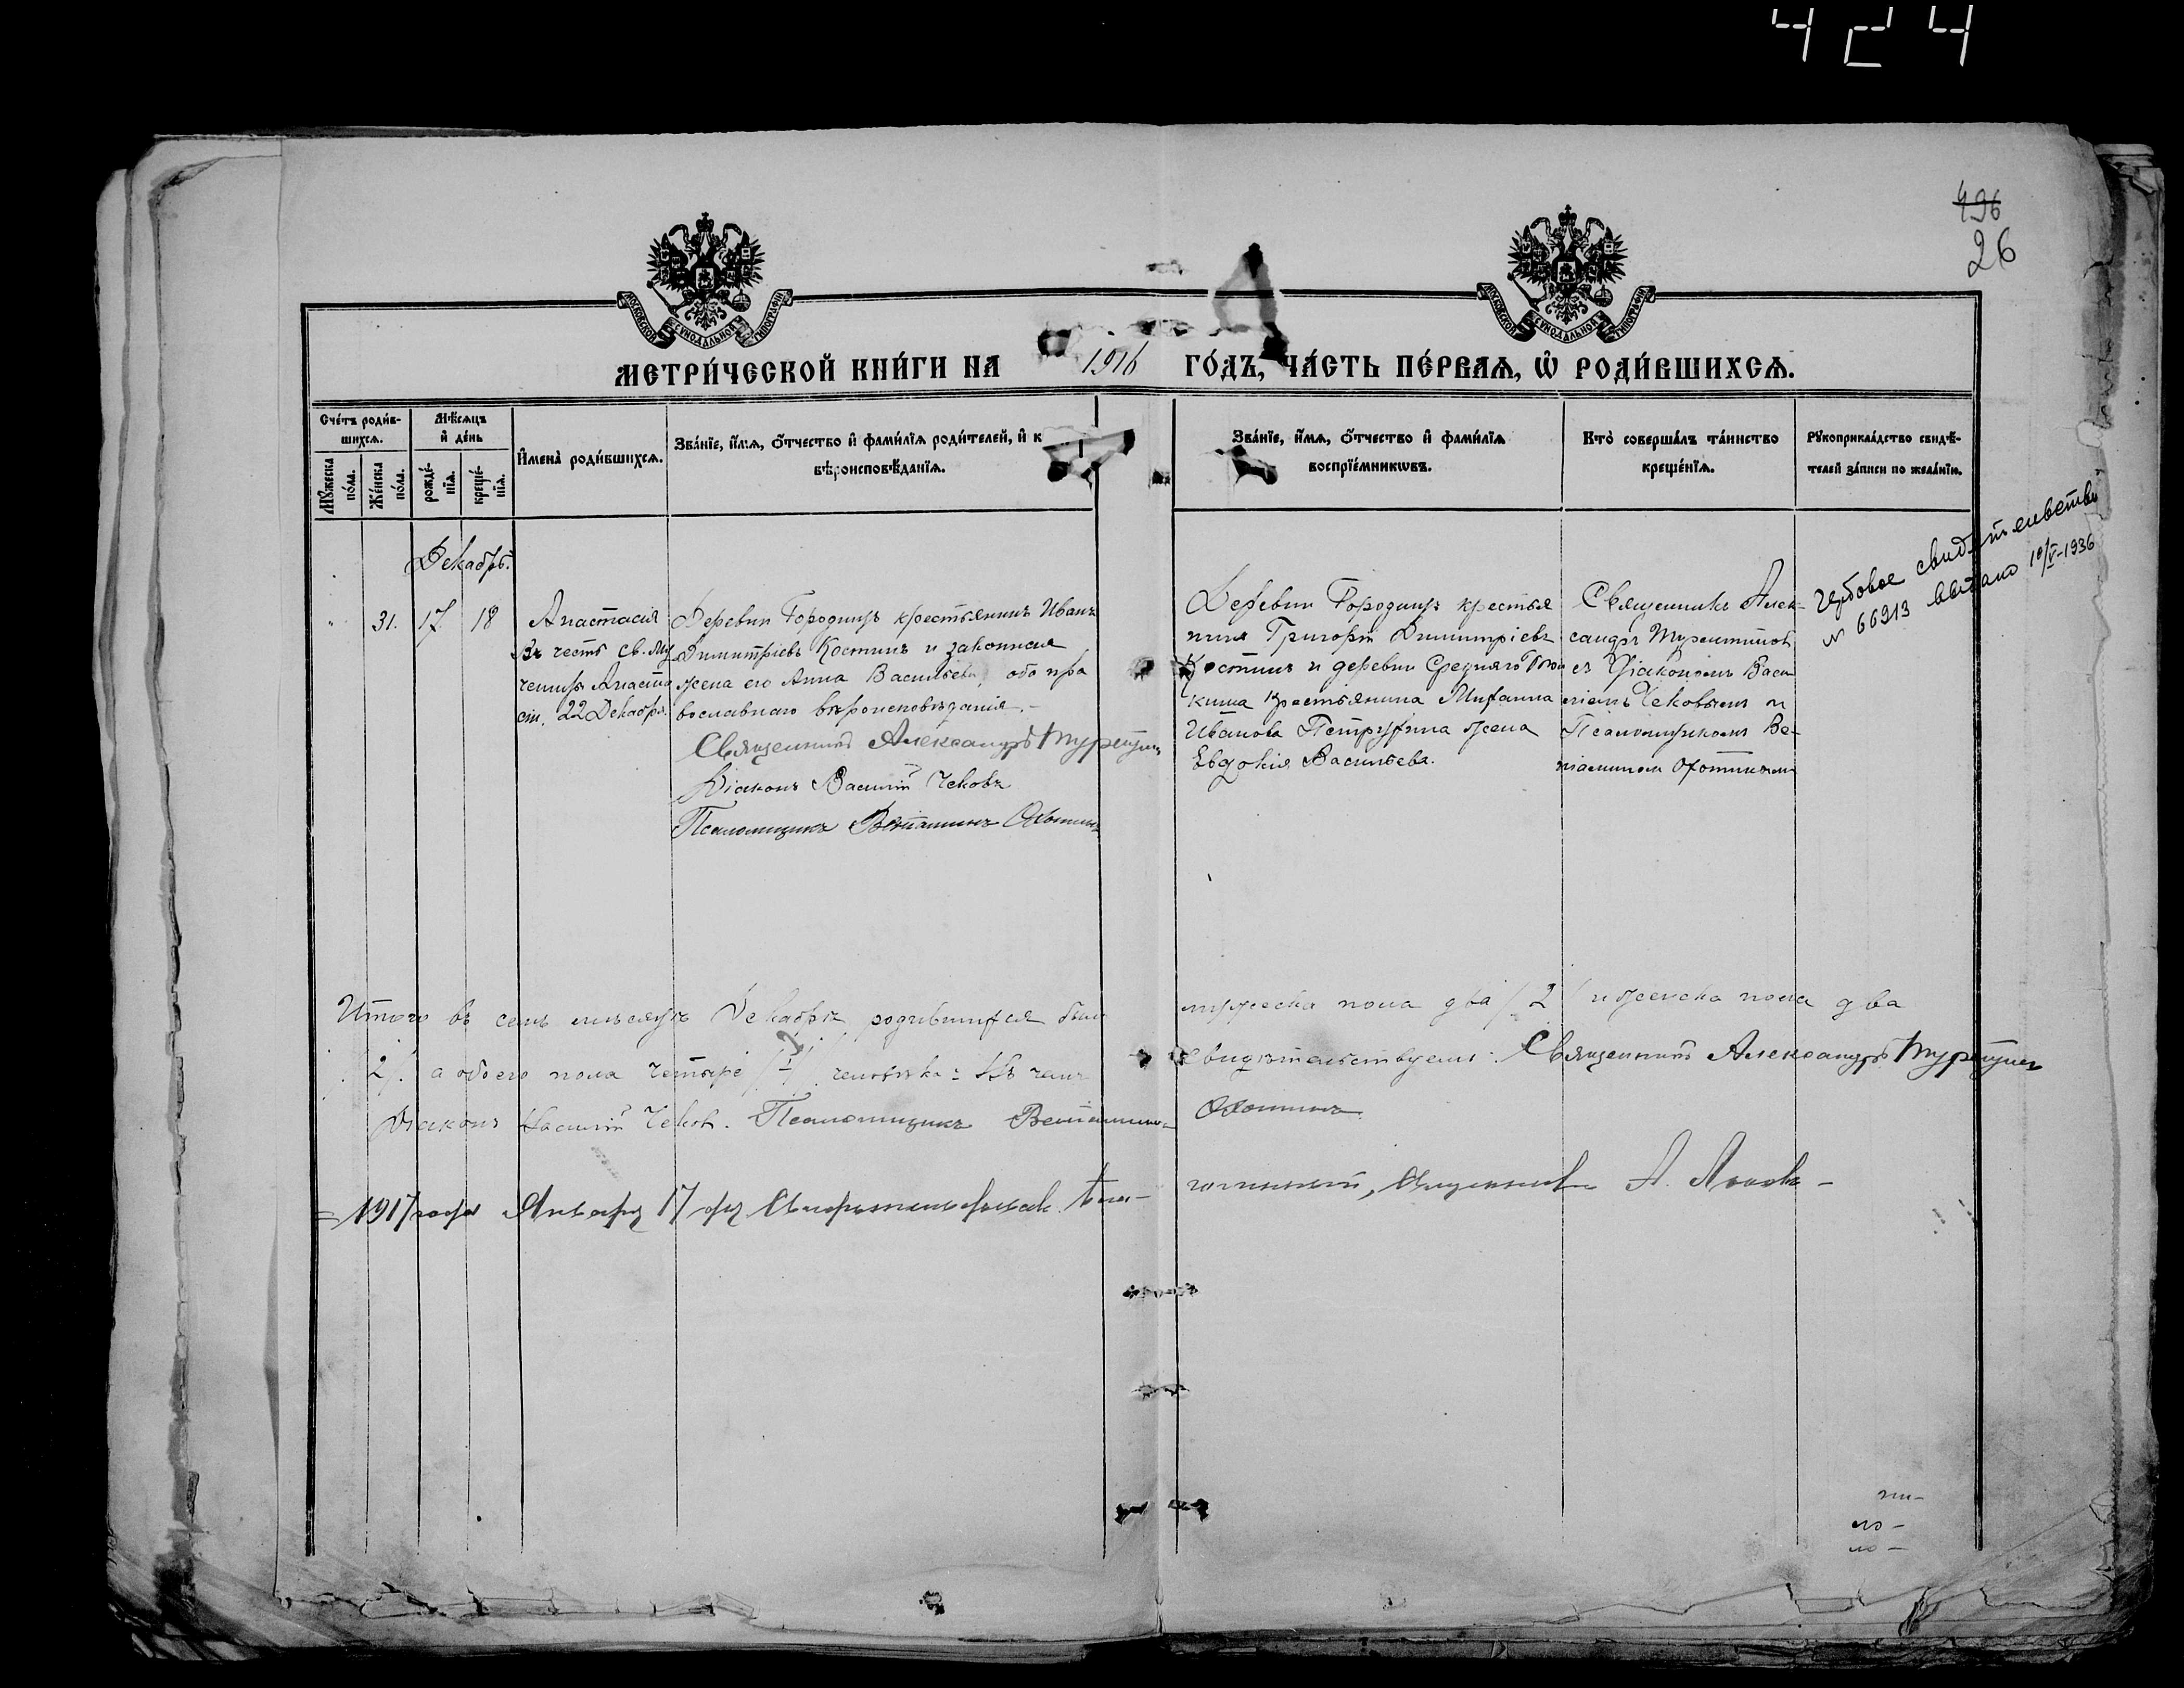 424
496
26
МОСКОВСКОЙ СѴНОДАЛЬНОЙ ТИПОГРАФІИ
МОСКОВСКОЙ СѴНОДАЛЬНОЙ ТИПОГРАФІИ
МЕТРИ́ЧЕСКОЙ КНИ́ГИ НА 1916 ГО́ДЪ, ЧА́СТЬ ПЕ́РВАѦ, Ѡ҆ РОДИ́ВШИХСѦ.
Сче́тъ роди́в-
шихсѧ.
Мꙋ́жеска по́ла.
Же́нска по́ла.
Мѣ́сѧцъ
и҆ де́нь
рожде́-
нїѧ.
креще́-
нїѧ.
И҆мена̀ роди́вшихсѧ.
Зва́нїе, и҆́мѧ, ѻ҆́тчество и҆ фами́лїѧ роди́телей, и҆ к
вѣроисповѣ́данїѧ.
Зва́нїе, и҆́мѧ, ѻ҆́тчество и҆ фами́лїѧ
воспрїе́мникѡвъ.
Кто̀ соверша́лъ та́инство
креще́нїѧ.
Рꙋкоприкла́дство свидѣ́-
телей за́писи по жела́нїю.
Декабрь.
31. 17 18
Анастасія
Въ честь св. Му
ченицы Анаста
сіи, 22 Декабря.
Деревни Городищъ крестьянинъ Иванъ
Димитріевъ Костинъ и законная
жена его Анна Васильева, оба пра
вославнаго вѣроисповѣданія.
Священникъ Александръ
Діаконъ Василій Чековъ
Псаломщикъ Веніаминъ Охотинъ
Деревни Городищъ крестья
нинъ Григорій Димитріевъ
Костинъ и деревни Средняго
кина крестьянина Михаила
Иванова Петрухина жена
Евдокія Васильева.
Священникъ Алек-
сандръ
съ Діакономъ Васи
ліемъ Чековымъ и
Псаломщикомъ Ве-
ніаминомъ Охотинымъ
Гербовое свидѣтельство
№ 66913 выдано 10/V-1936
Итого въ семъ мѣсяцѣ Декабрѣ родившихся было мужеска пола два /2/ и женска пола два
/2/. а обоего пола четыре /4/ человѣка: Въ чемъ свидѣтельствуемъ: Священникъ Александръ
Діаконъ Василій Чеков. Псаломщикъ Веніаминъ Охотинъ
1917 года Января 17 дня священникъ А.